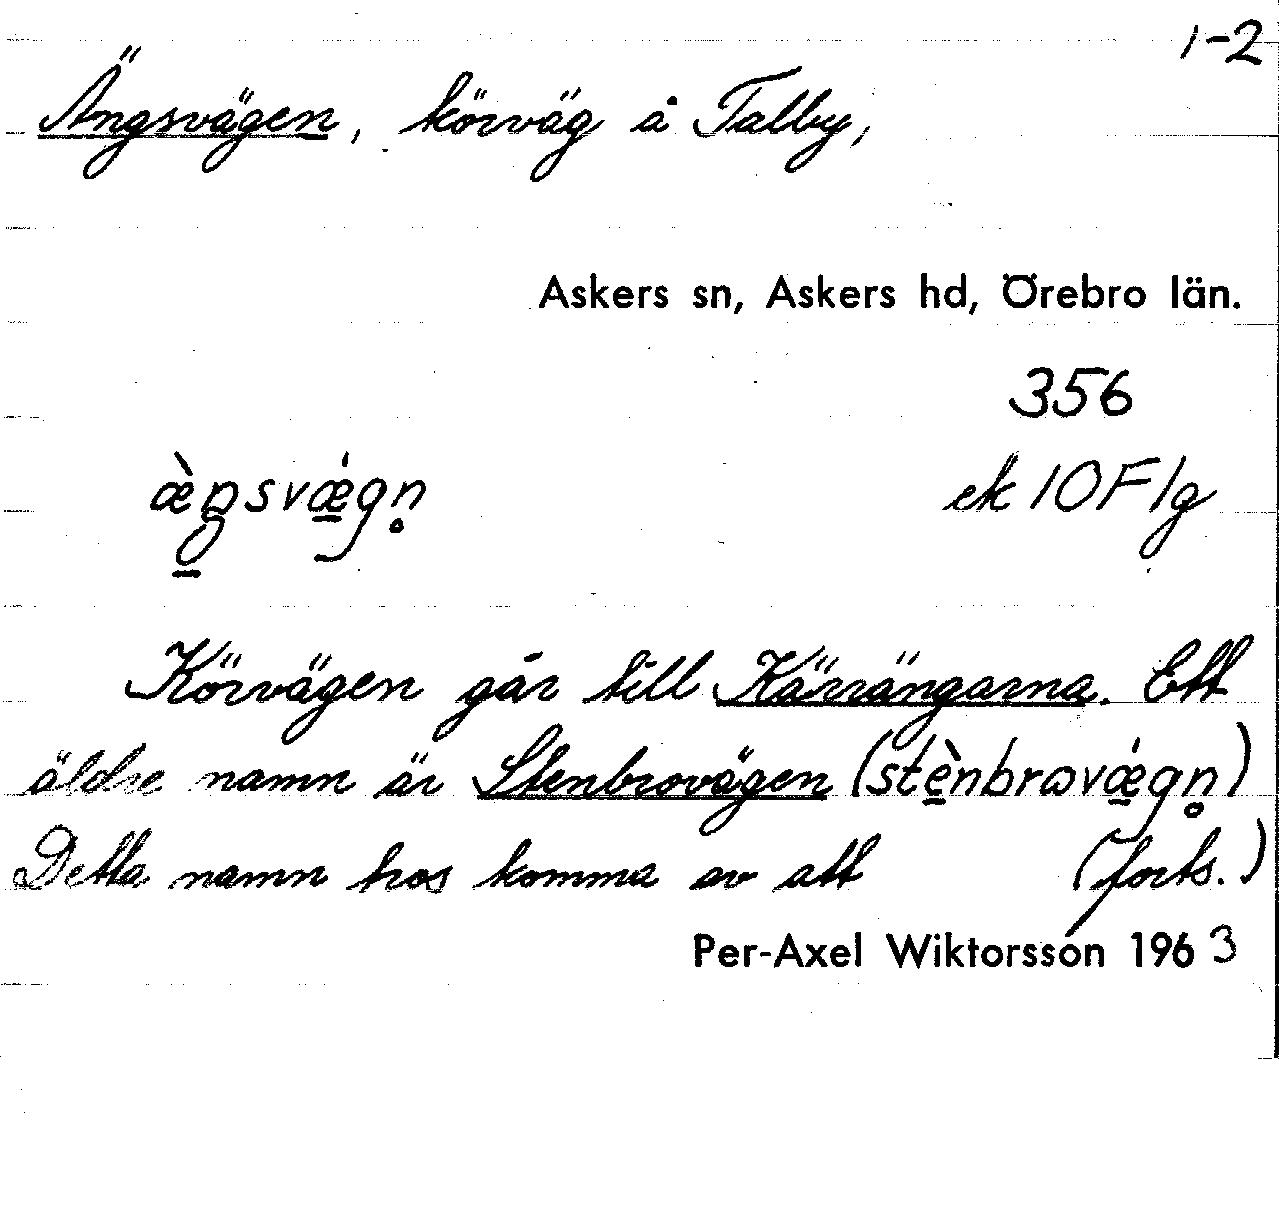 1-2
Ängsvägen, körväg å Talby,
Askers sn, Askers hd, Örebro län.
356
æ̀ŋsvǽgn̥ ek 10F1g
Körvägen går till Kärrängarna. Ett
äldre namn är Stenbrovägen (stènbrωvǽgn̥)
Detta namn hos komma av att (forts.)
Per-Axel Wiktorsson 1963